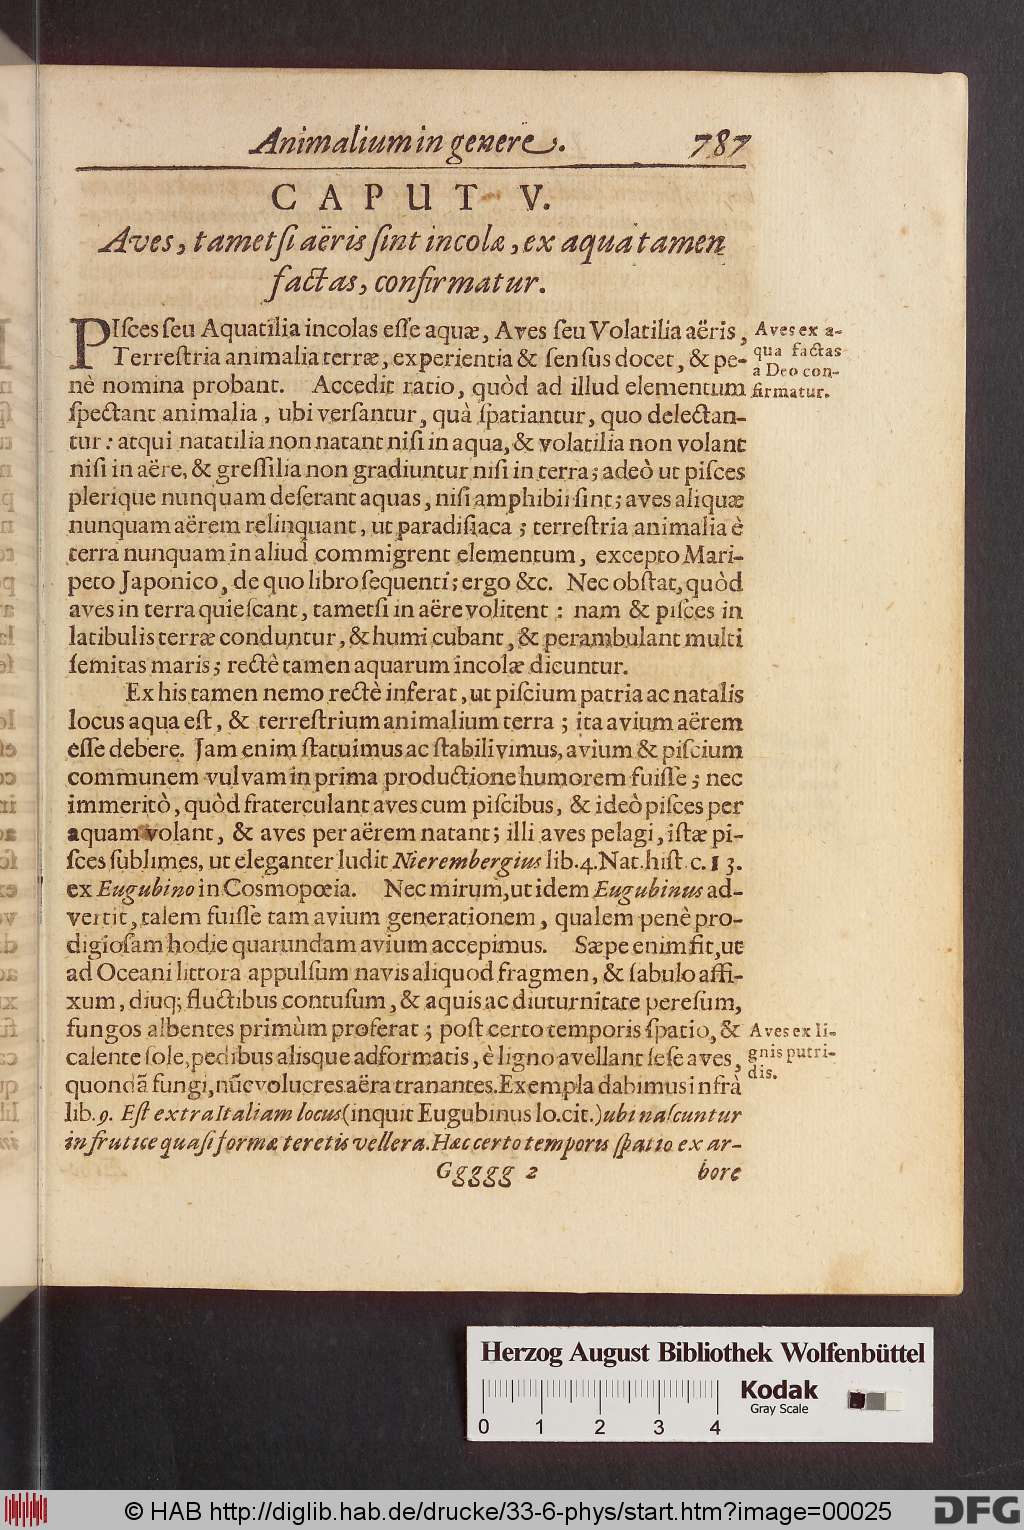 Animalium in genere. 787
CAPUT V.
Aves, tametſi aëris ſint incolæ, ex aqua tamen
factas, confirmatur.
PIſces ſeu Aquatilia incolas eſſe aquæ, Aves ſeu Volatilia aëris,
Terreſtria animalia terræ, experientia & ſenſus docet, & pe-
nè nomina probant. Accedit ratio, quòd ad illud elementum
ſpectant animalia, ubi verſantur, quà ſpatiantur, quo delectan-
tur: atqui natatilia non natant niſi in aqua, & volatilia non volant
niſi in aëre, & greſſilia non gradiuntur niſi in terra; adeò ut piſces
plerique nunquam deſerant aquas, niſi amphibii ſint; aves aliquæ
nunquam aërem relinquant, ut paradiſiaca; terreſtria animalia è
terra nunquam in aliud commigrent elementum, excepto Mari-
peto Japonico, de quo libro ſequenti; ergo &c. Nec obſtat, quòd
aves in terra quieſcant, tametſi in aëre volitent: nam & piſces in
latibulis terræ conduntur, & humi cubant, & perambulant multi
ſemitas maris; rectè tamen aquarum incolæ dicuntur.
Ex his tamen nemo rectè inferat, ut piſcium patria ac natalis
locus aqua eſt, & terreſtrium animalium terra; ita avium aërem
eſſe debere. Jam enim ſtatuimus ac ſtabilivimus, avium & piſcium
communem vulvam in prima productione humorem fuiſſe; nec
immeritò, quòd fraterculant aves cum piſcibus, & ideò piſces per
aquam volant, & aves per aërem natant; illi aves pelagi, iſtæ pi-
ſces ſublimes, ut eleganter ludit Nierembergius lib. 4. Nat. hiſt. c. 13.
ex Eugubino in Cosmopœia. Nec mirum, ut idem Eugubinus ad-
vertit, talem fuiſſe tam avium generationem, qualem penè pro-
digioſam hodie quarundam avium accepimus. Sæpe enim fit, ut
ad Oceani littora appulſum navis aliquod fragmen, & ſabulo affi-
xum, diuq; fluctibus contuſum, & aquis ac diuturnitate pereſum,
fungos albentes primùm proferat; poſt certo temporis ſpatio, &
calente ſole, pedibus alisque adformatis, è ligno avellant ſeſe aves,
quondã fungi, nũc volucres aëra tranantes. Exempla dabimus infrà
lib. 9. Eſt extra Italiam locus (inquit Eugubinus lo. cit.) ubi naſcuntur
in frutice quaſi formæ teretis vellera. Hæc certo temporis ſpatio ex ar-
Ggggg 2 bore
Aves ex a-
qua factas
a Deo con-
firmatur.
Aves ex li-
gnis putri-
dis.
Herzog August Bibliothek Wolfenbüttel
Kodak
Gray Scale
0 1 2 3 4
© HAB http://diglib.hab.de/drucke/33-6-phys/start.htm?image=00025
DFG